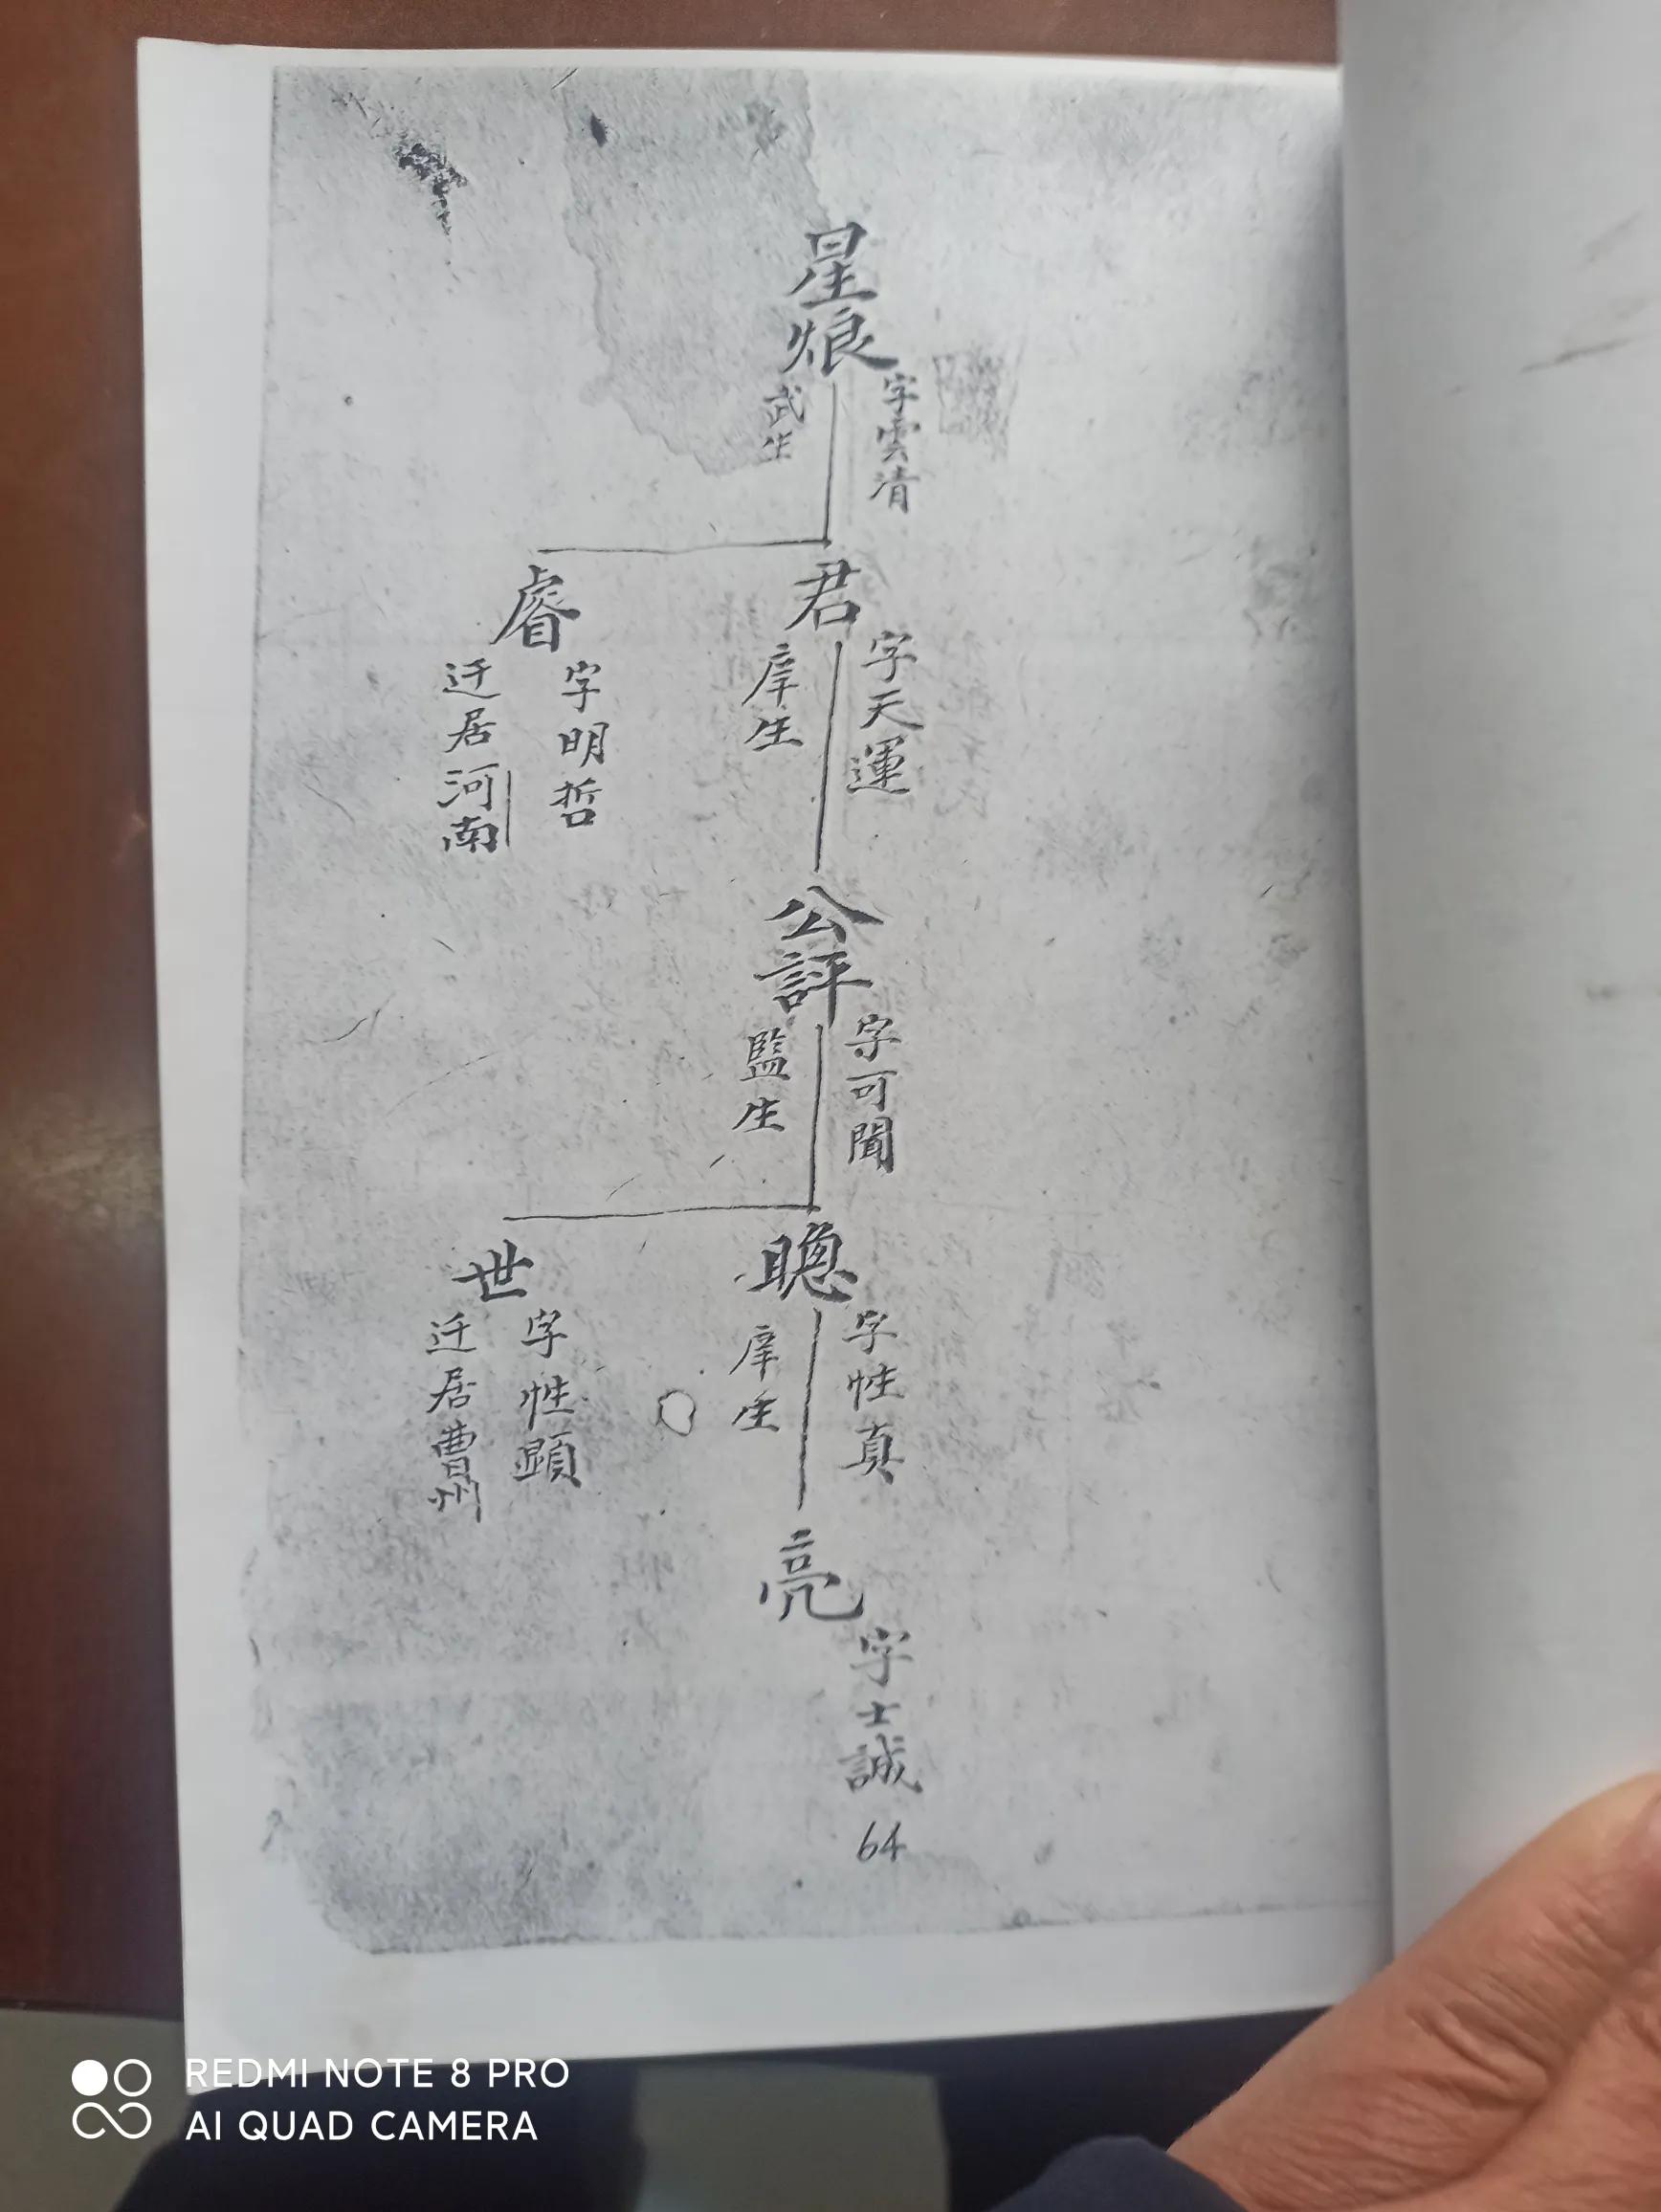 星烺
字雲清
武生
君
字天運
庠生
睿
字明哲
迁居河南
公評
字可聞
監生
聰
字性真
庠生
世
字性顕
迁居曹州
亮
字士誠
64
REDMI NOTE 8 PRO
AI QUAD CAMERA